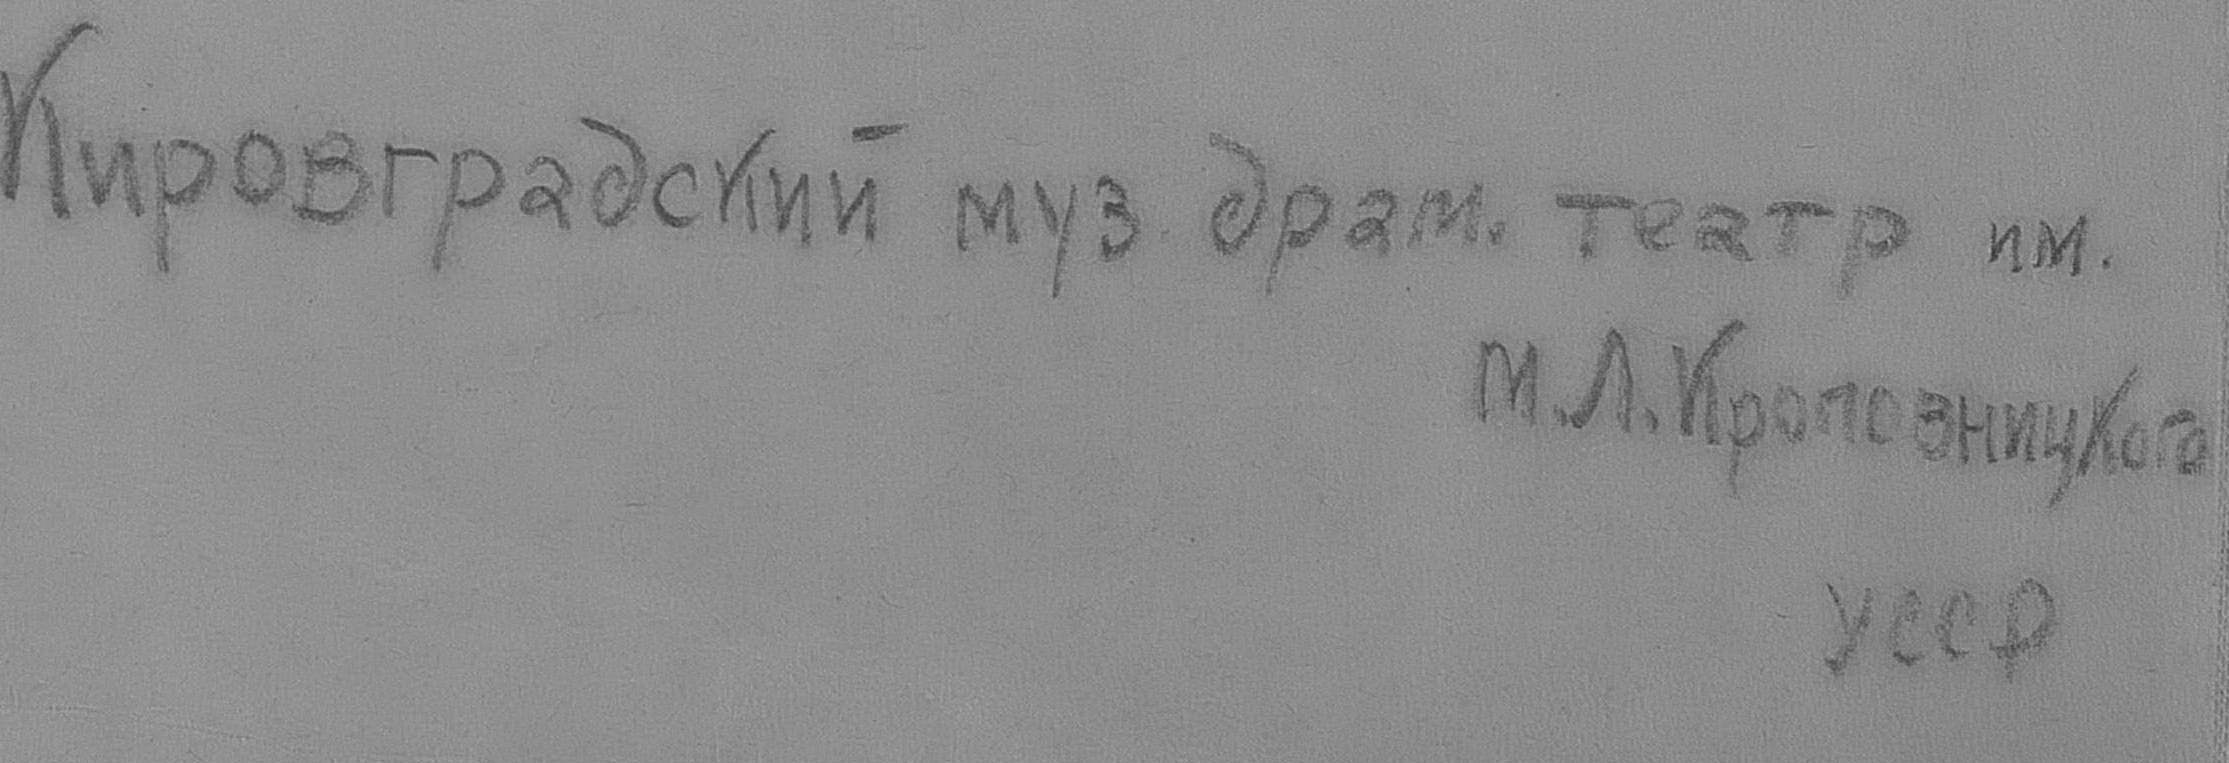 Кировградский муз. драм. театр им.
М.Л.Кропозницкого
УССР